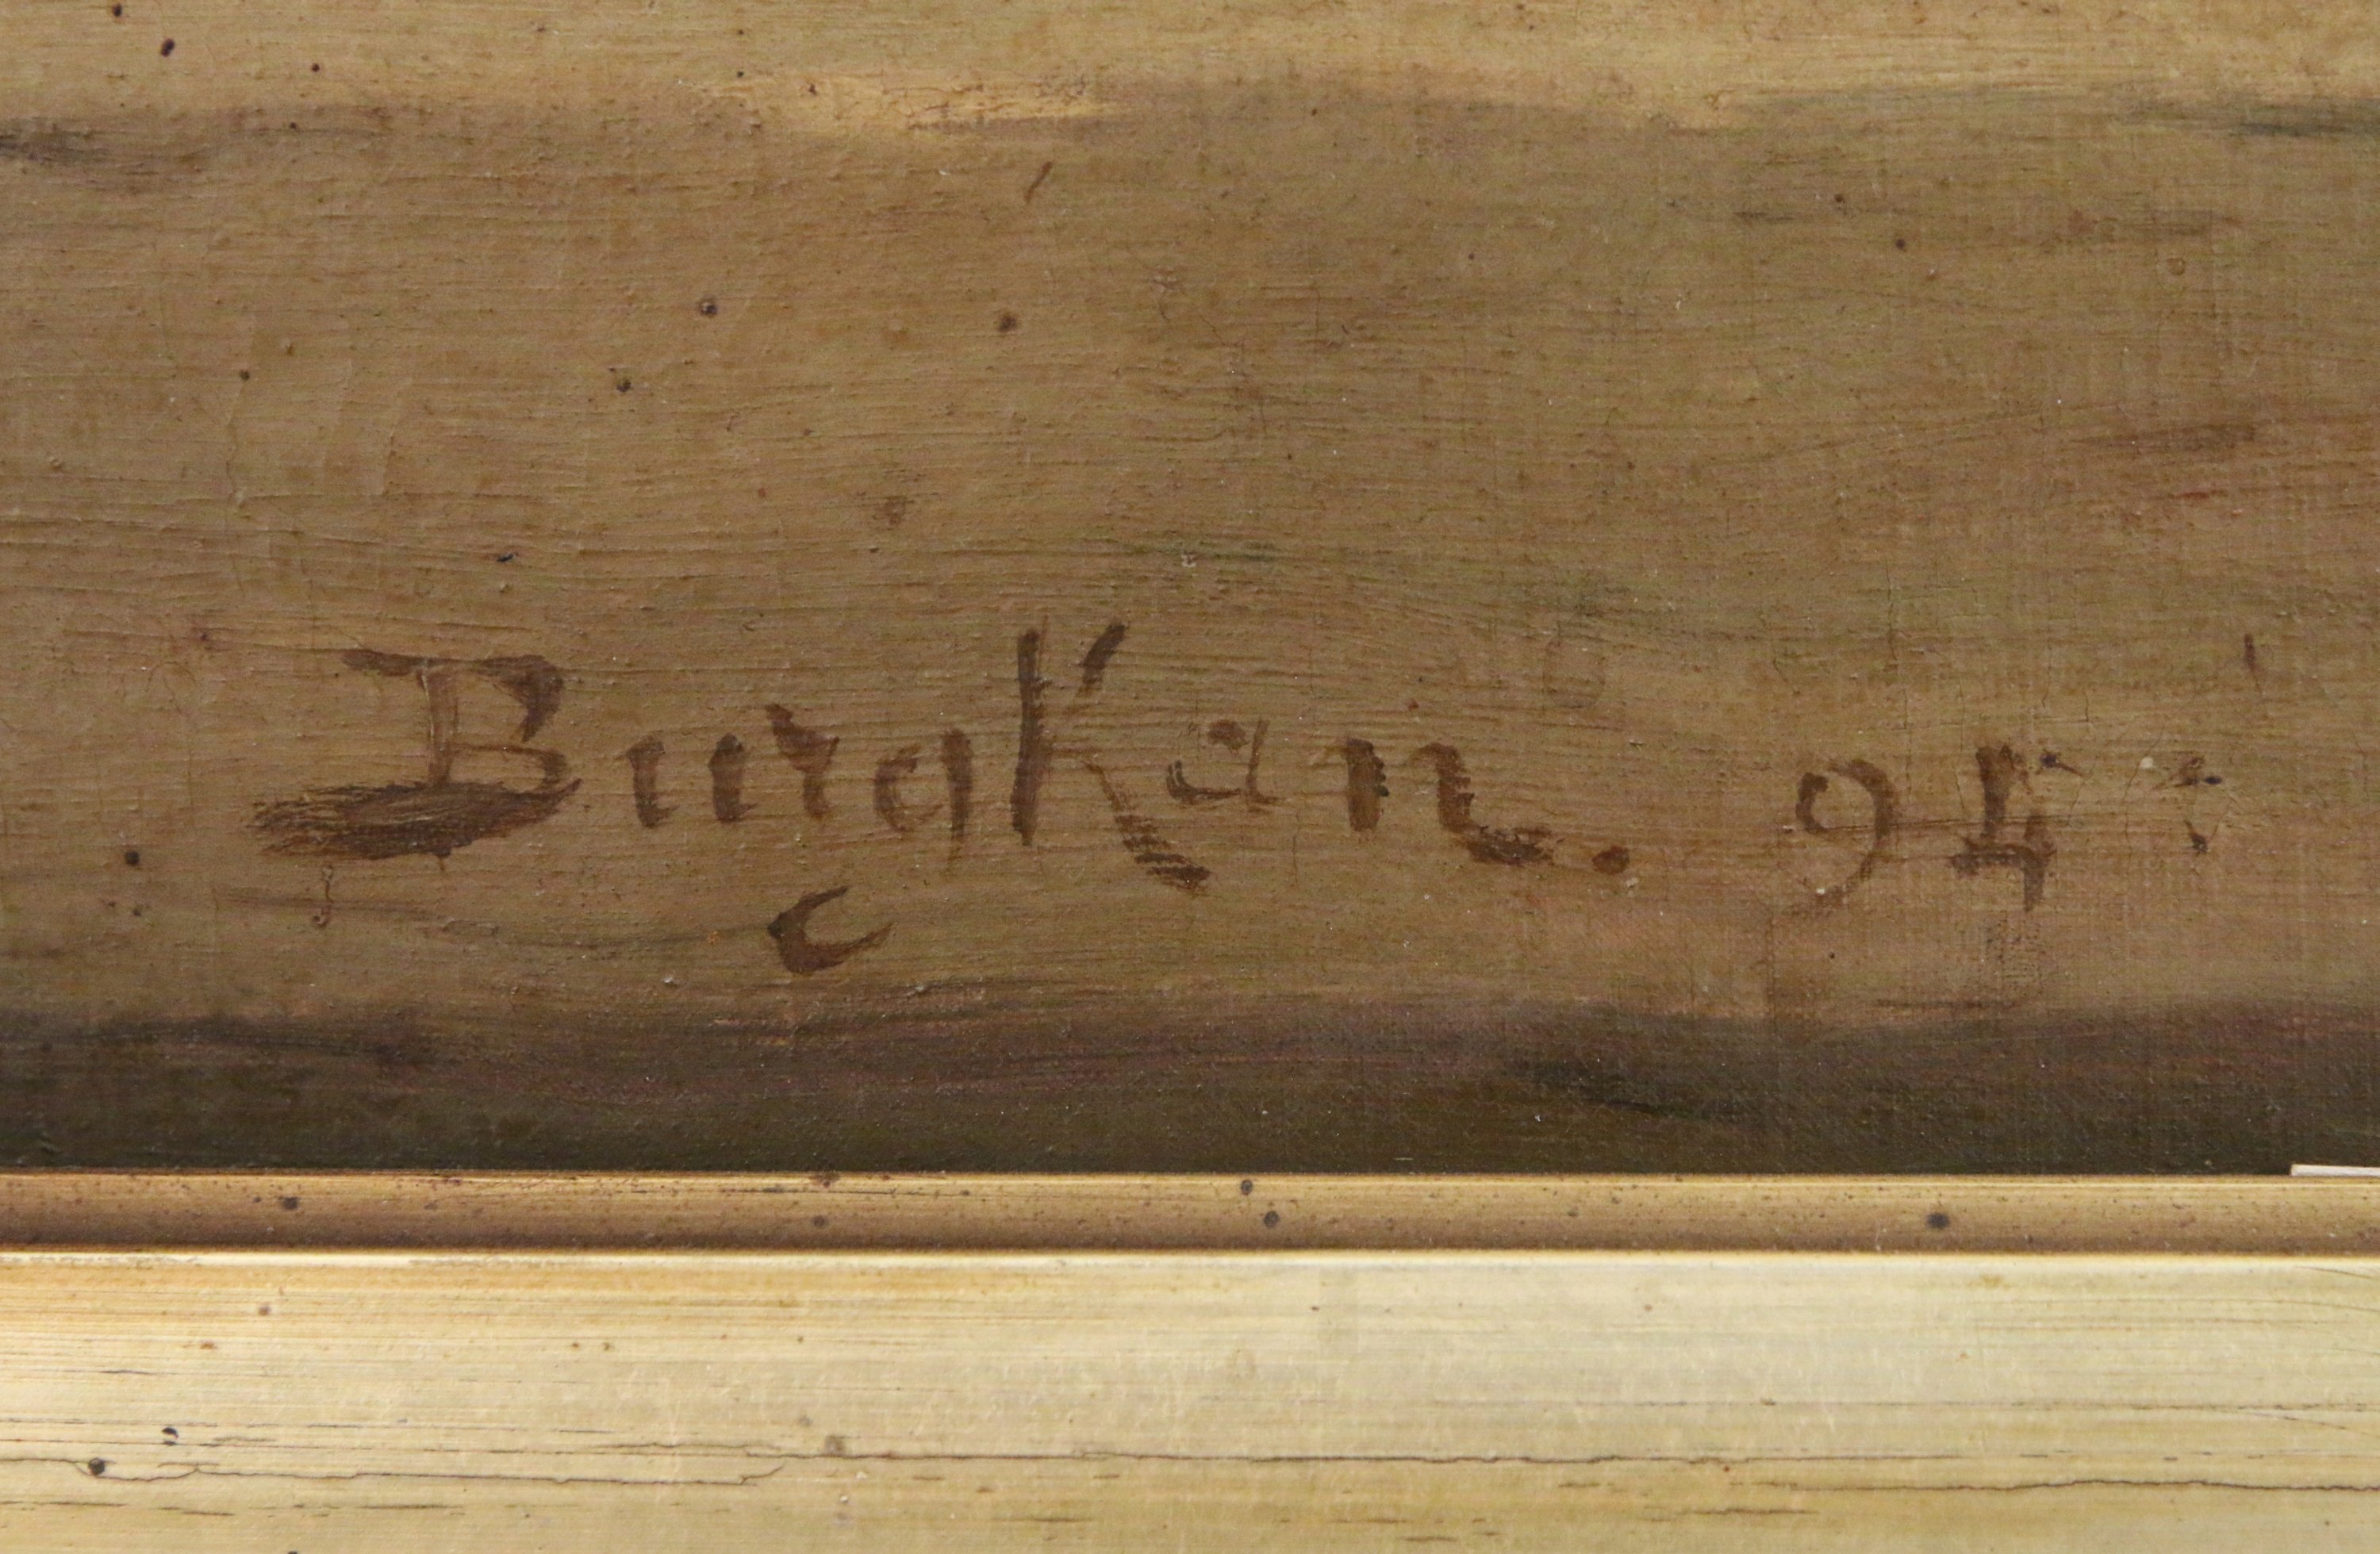 BurgKan. 94